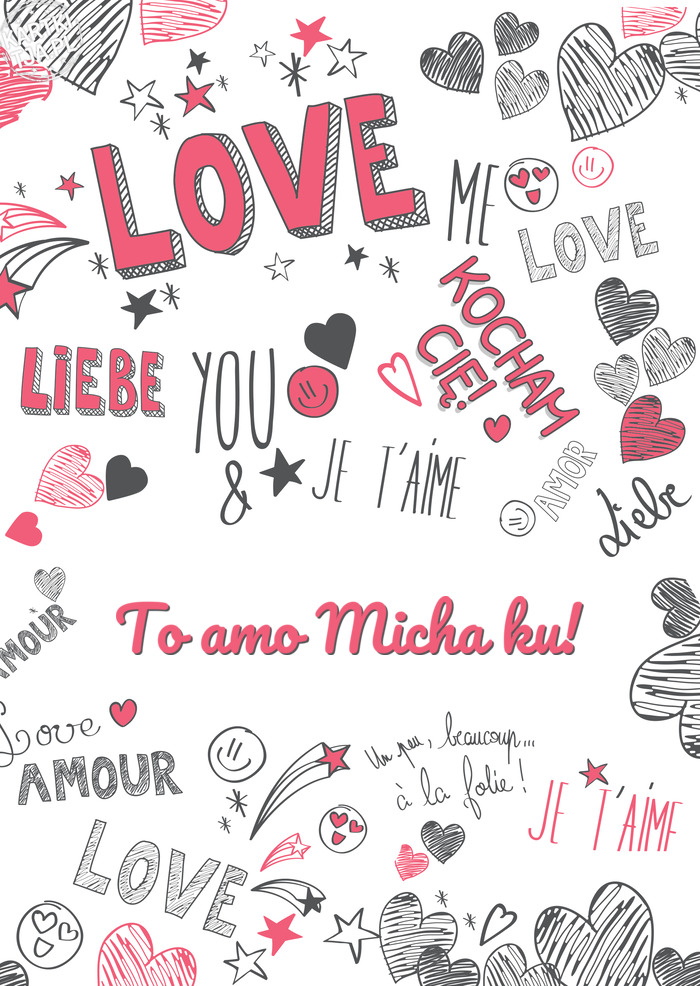 LOVE
ME
LOVE
KOCHAM
CIĘ!
LIEBE
YOU
&
JE T'AIME
AMOR
Liebe
To amo Micha ku!
AMOUR
Love
AMOUR
Un peu, beaucoup...
à la folie!
JE T'AIME
LOVE